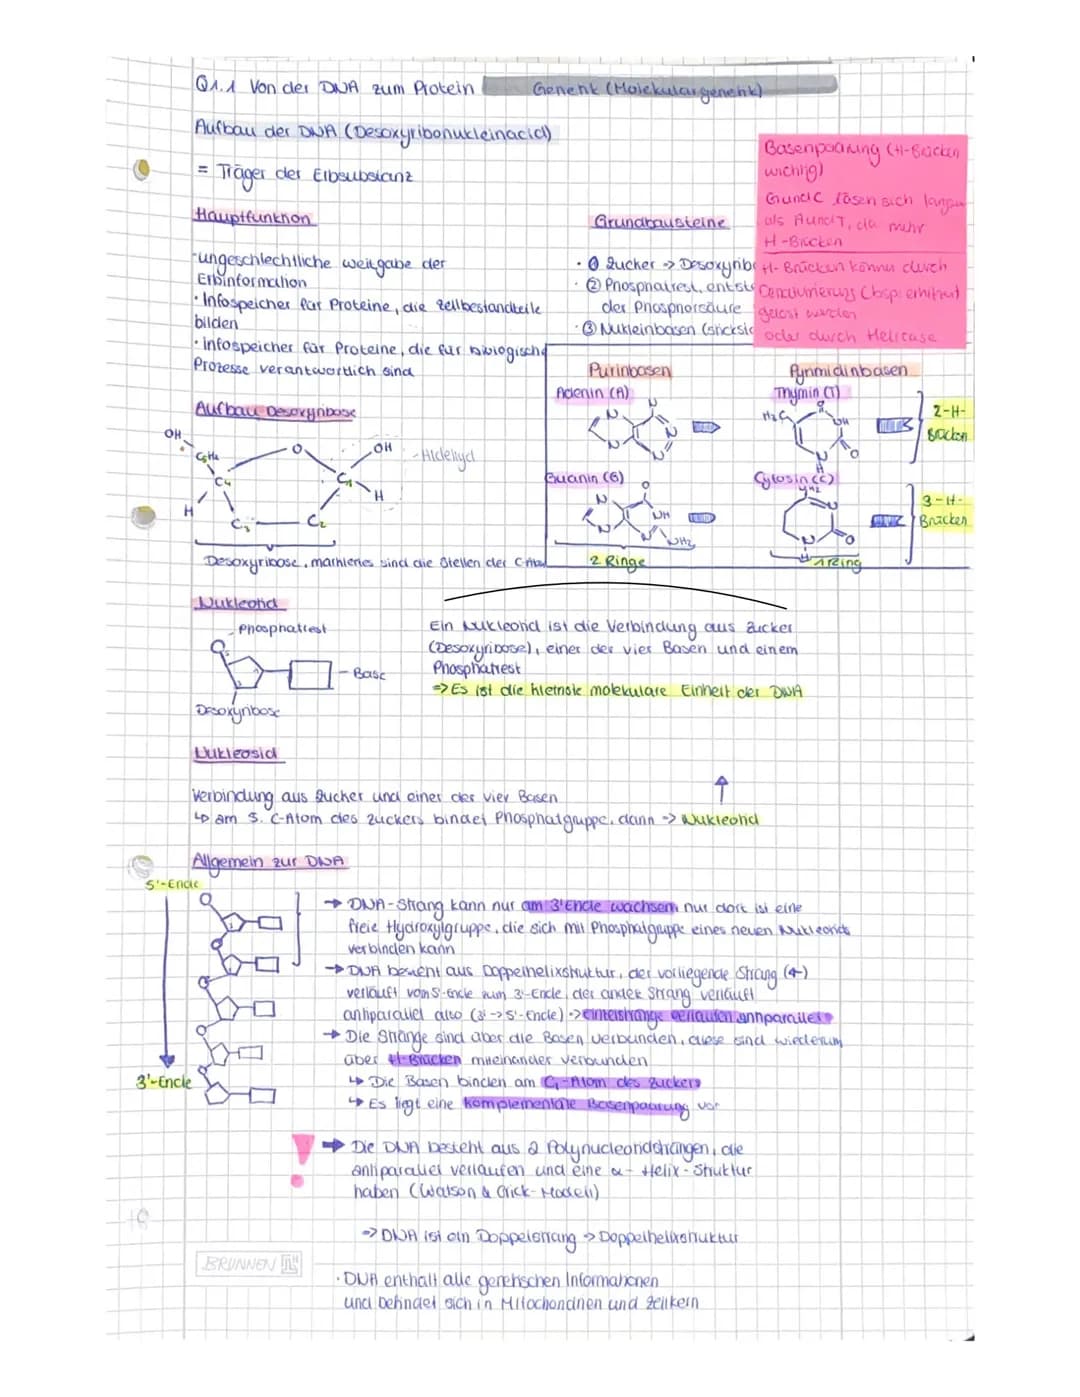 Q1.1 Von der DNA zum Protein
Genetik (Molekulargenetik)
Aufbau der DNA (Desoxyribonukleinacid)
= Träger der Erbsubstanz
Basenpaarung (H-Brücken
wichtig)
G und C lösen sich langsa
als A und T, da mehr
H-Brücken
H-Brücken können durch
Denaturierung (bsp. erhitzt)
gelöst werden
oder durch Helicase
Hauptfunktion
-ungeschlechtliche weitgabe der
Erbinformation
· Infospeicher für Proteine, die Zellbestandteile
bilden
· Infospeicher für Proteine, die für biologische
Prozesse verantwortlich sind
Grundbausteine
· ① Zucker -> Desoxyrib
· ② Phosphatrest, entste
der Phosphorsäure
· ③ Nukleinbasen (sticksto
Aufbau Desoxyribose
OH
C5H2
O
OH
-Aldehyd
C4
C1
H
H
C3
C2
Desoxyribose, markiertes sind die Stellen der C-Ato
Purinbasen
Pyrimidinbasen
Adenin (A)
Thymin (T)
N
N
N
N
N
H3C
O
NH
O
N
H
2-H-
Brücken
Guanin (G)
Cytosin (C)
N
N
O
NH
N
NH2
NH2
N
N
O
H
3-H-
Brücken
2 Ringe
1 Ring
Nukleotid
Phosphatrest
Base
Desoxyribose
Ein Nukleotid ist die Verbindung aus Zucker
(Desoxyribose), einer der vier Basen und einem
Phosphatrest
=> Es ist die kleinste molekulare Einheit der DNA
Nukleosid
Verbindung aus Zucker und einer der vier Basen
↳ am 5. C-Atom des Zuckers bindet Phosphatgruppe, dann -> Nukleotid
Allgemein zur DNA
5'-Ende
3'-Ende
→ DNA-Strang kann nur am 3'Ende wachsen, nur dort ist eine
freie Hydroxylgruppe, die sich mit Phosphatgruppe eines neuen Nukleotids
verbinden kann
→ DNA besteht aus Doppelhelixstruktur, der vorliegende Strang (←)
verläuft vom 5'-Ende zum 3'-Ende, der andere Strang verläuft
antiparallel also (3' -> 5'-Ende) -> Einzelstränge verlaufen antiparallel
→ Die Stränge sind über die Basen verbunden, diese sind wiederum
über H-Brücken miteinander verbunden
↳ Die Basen binden am C1-Atom des Zuckers
↳ Es liegt eine komplementäre Basenpaarung vor
! → Die DNA besteht aus 2 Polynucleotidsträngen, die
antiparallel verlaufen und eine α-Helix-Struktur
haben (Watson & Crick-Modell)
=> DNA ist ein Doppelstrang -> Doppelhelixstruktur
BRUNNEN
· DNA enthält alle genetischen Informationen
und befindet sich in Mitochondrien und Zellkern